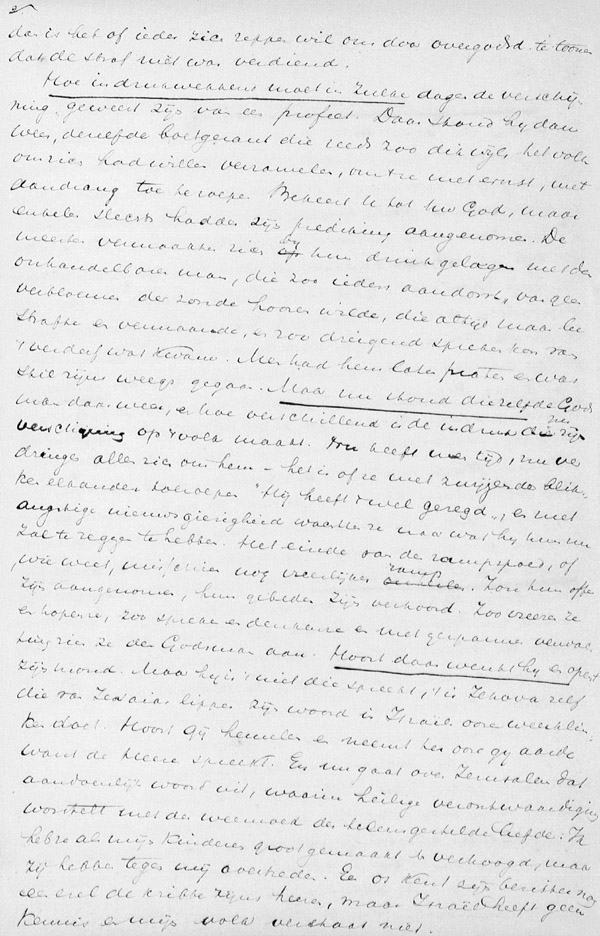 2
dan is het of ieder zich reppen wil om door overgoed te toonen
dat de straf niet was verdiend.
Hoe indrukwekkend moet in zulke dagen de verschij-
ning geweest zijn van een profeet. Daar stond hij dan
weer, dezelfde boetgezant die reeds zoo dikwijls het volk
om zich had willen verzamelen, om ze met ernst, met
aandrang toe te roepen Bekeert U tot Uw God, maar
enkelen slechts hadden zijn prediking aangenomen. De
meesten vermaakten zich bij hun drinkgelagen met den
onhandelbaren man, die zoo ieders aandorst, van geen
verbloemen der zonde hooren wilde, die altijd maar be
strafte en vermaande, en zoo dreigend spreken kon van
't verderf wat kwam. Men had hem laten praten en was
stil zijns weegs gegaan. Maar nu stond diezelfde Gods
man daar weer, en hoe verschillend is de indruk die zijn
verschijning op 't volk maakt. Nu heeft men tijd, nu ver
dringen allen zich om hem - het is of ze met zwijgende blik-
ken elkander toeroepen "Hij heeft 't wel gezegd", en met
angstige nieuwsgierigheid wachten ze nu wat hij hun nu
zal te zeggen hebben. Het einde van de rampspoed, of
wie weet, misschien nog vreeselijker ramp. Zou hun offer
zijn aangenomen, hun gebeden zijn verhoord. Zoo vreezen ze
en hopen ze, zoo spreken en denken ze en met gespannen verwach
ting zien ze den Godsman aan. Hoort daar wenkt hij en opent
zijn mond. Maar hij is 't niet die spreekt, 't is Jehova zelf
die van Jesaias lippen zijn woord in Israëls ooren weerklin-
ken doet. Hoort Gij hemelen en neemt ter oore gij aarde
want de Heere spreekt. En nu gaat over Jerusalem dat
aandoenlijk woord uit, waarin heilige verontwaardiging
worstelt met den weemoed der teleurgestelde liefde. Ik
hebbe als mijn kinderen groot gemaakt & verhoogd, maar
zij hebben tegen mij overtreden. Een os kent zijn bezitter nog
een ezel de kribbe zijns heeren, maar Israël heeft geen
kennis en mijn volk verstaat niet.